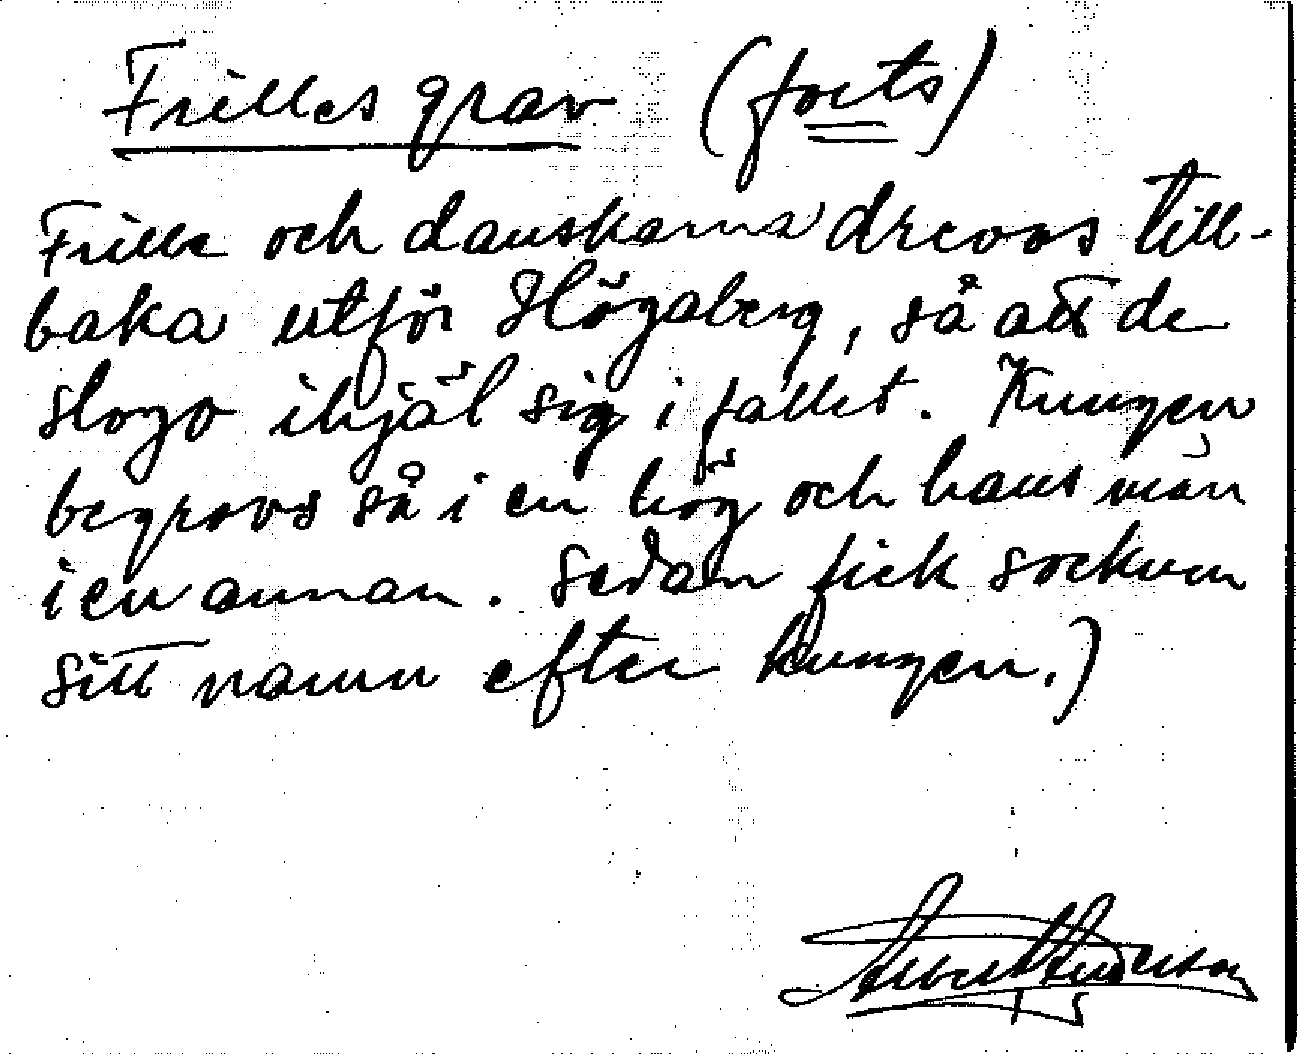 Frilles grav (forts)
Frille och danskarna drevos till-
baka utför Högaberg, så att de
slogo ihjäl sig i fallet. Kungen
begrovs så i en hög och hans män
i en annan. Sedan fick socknen
sitt namn efter kungen.)
Albert Anderson